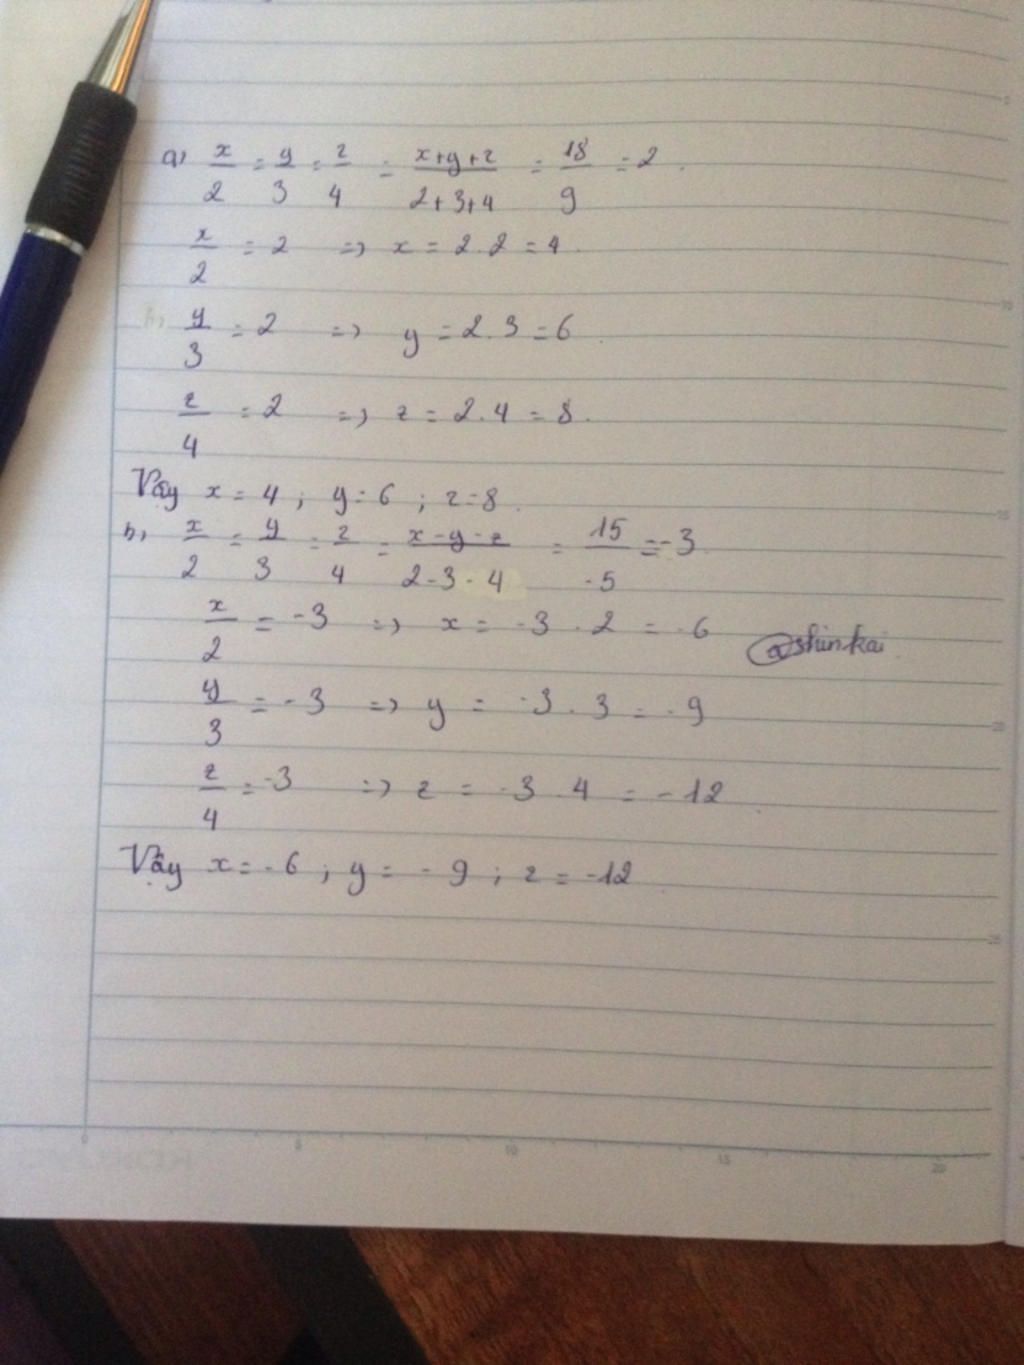 a) x/2 = y/3 = z/4 = (x+y+z)/(2+3+4) = 18/9 = 2.
x/2 = 2 => x = 2.2 = 4.
y/3 = 2 => y = 2.3 = 6.
z/4 = 2 => z = 2.4 = 8.
Vậy x = 4 ; y = 6 ; z = 8.
b, x/2 = y/3 = z/4 = (x-y-z)/(2-3-4) = 15/-5 = -3.
x/2 = -3 => x = -3 . 2 = -6
@shinkai
y/3 = -3 => y = -3 . 3 = -9
z/4 = -3 => z = -3 . 4 = -12
Vậy x = -6 ; y = -9 ; z = -12
0 5 10 15 20